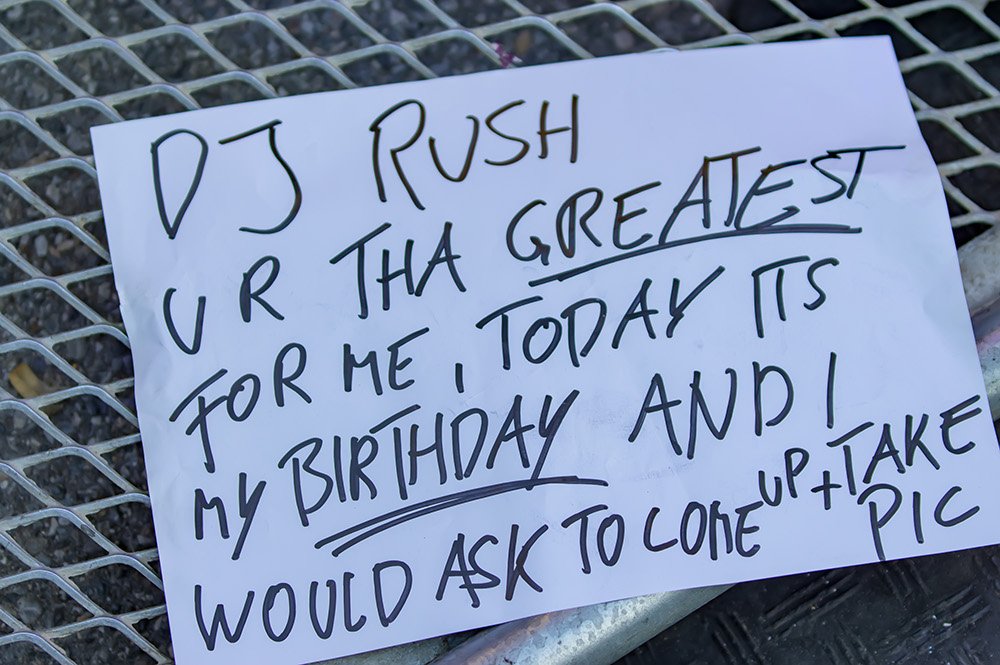 DJ RUSH
U R THA GREATEST
FOR ME, TODAY ITS
MY BIRTHDAY AND I
WOULD ASK TO COME UP + TAKE
PIC